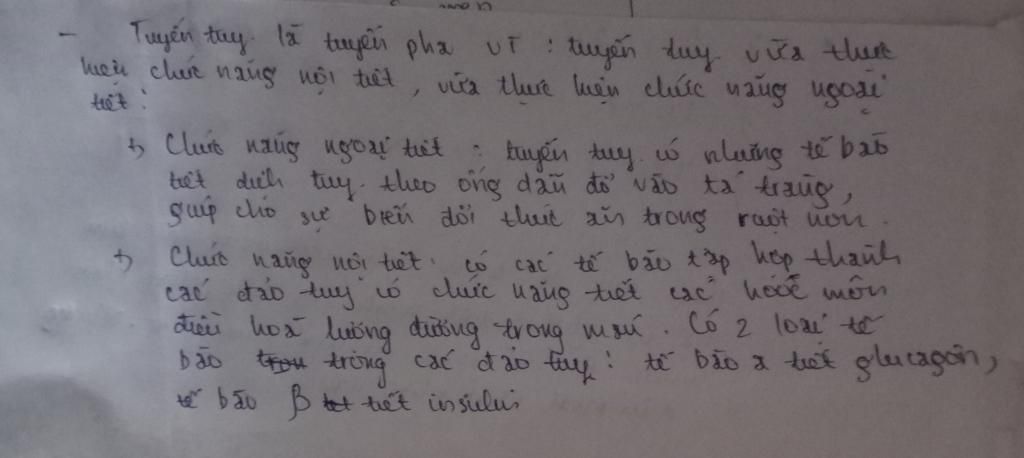 - Tuyến tuy là tuyến pha vì : tuyến tuy vừa thực
hiện chức năng nội tiết, vừa thực hiện chức năng ngoại
tiết:
+) Chức năng ngoại tiết : tuyến tuy có những tế bào
tiết dịch tuy theo ống dẫn đổ vào tá tràng,
giúp cho sự biến đổi thức ăn trong ruột non.
+) Chức năng nội tiết: có các tế bào tập hợp thành
các đảo tuy có chức năng tiết các hoóc môn
điều hoà lượng đường trong máu. Có 2 loại tế
bào trong các đảo tuy: tế bào α tiết glucagôn,
tế bào β tiết insulin